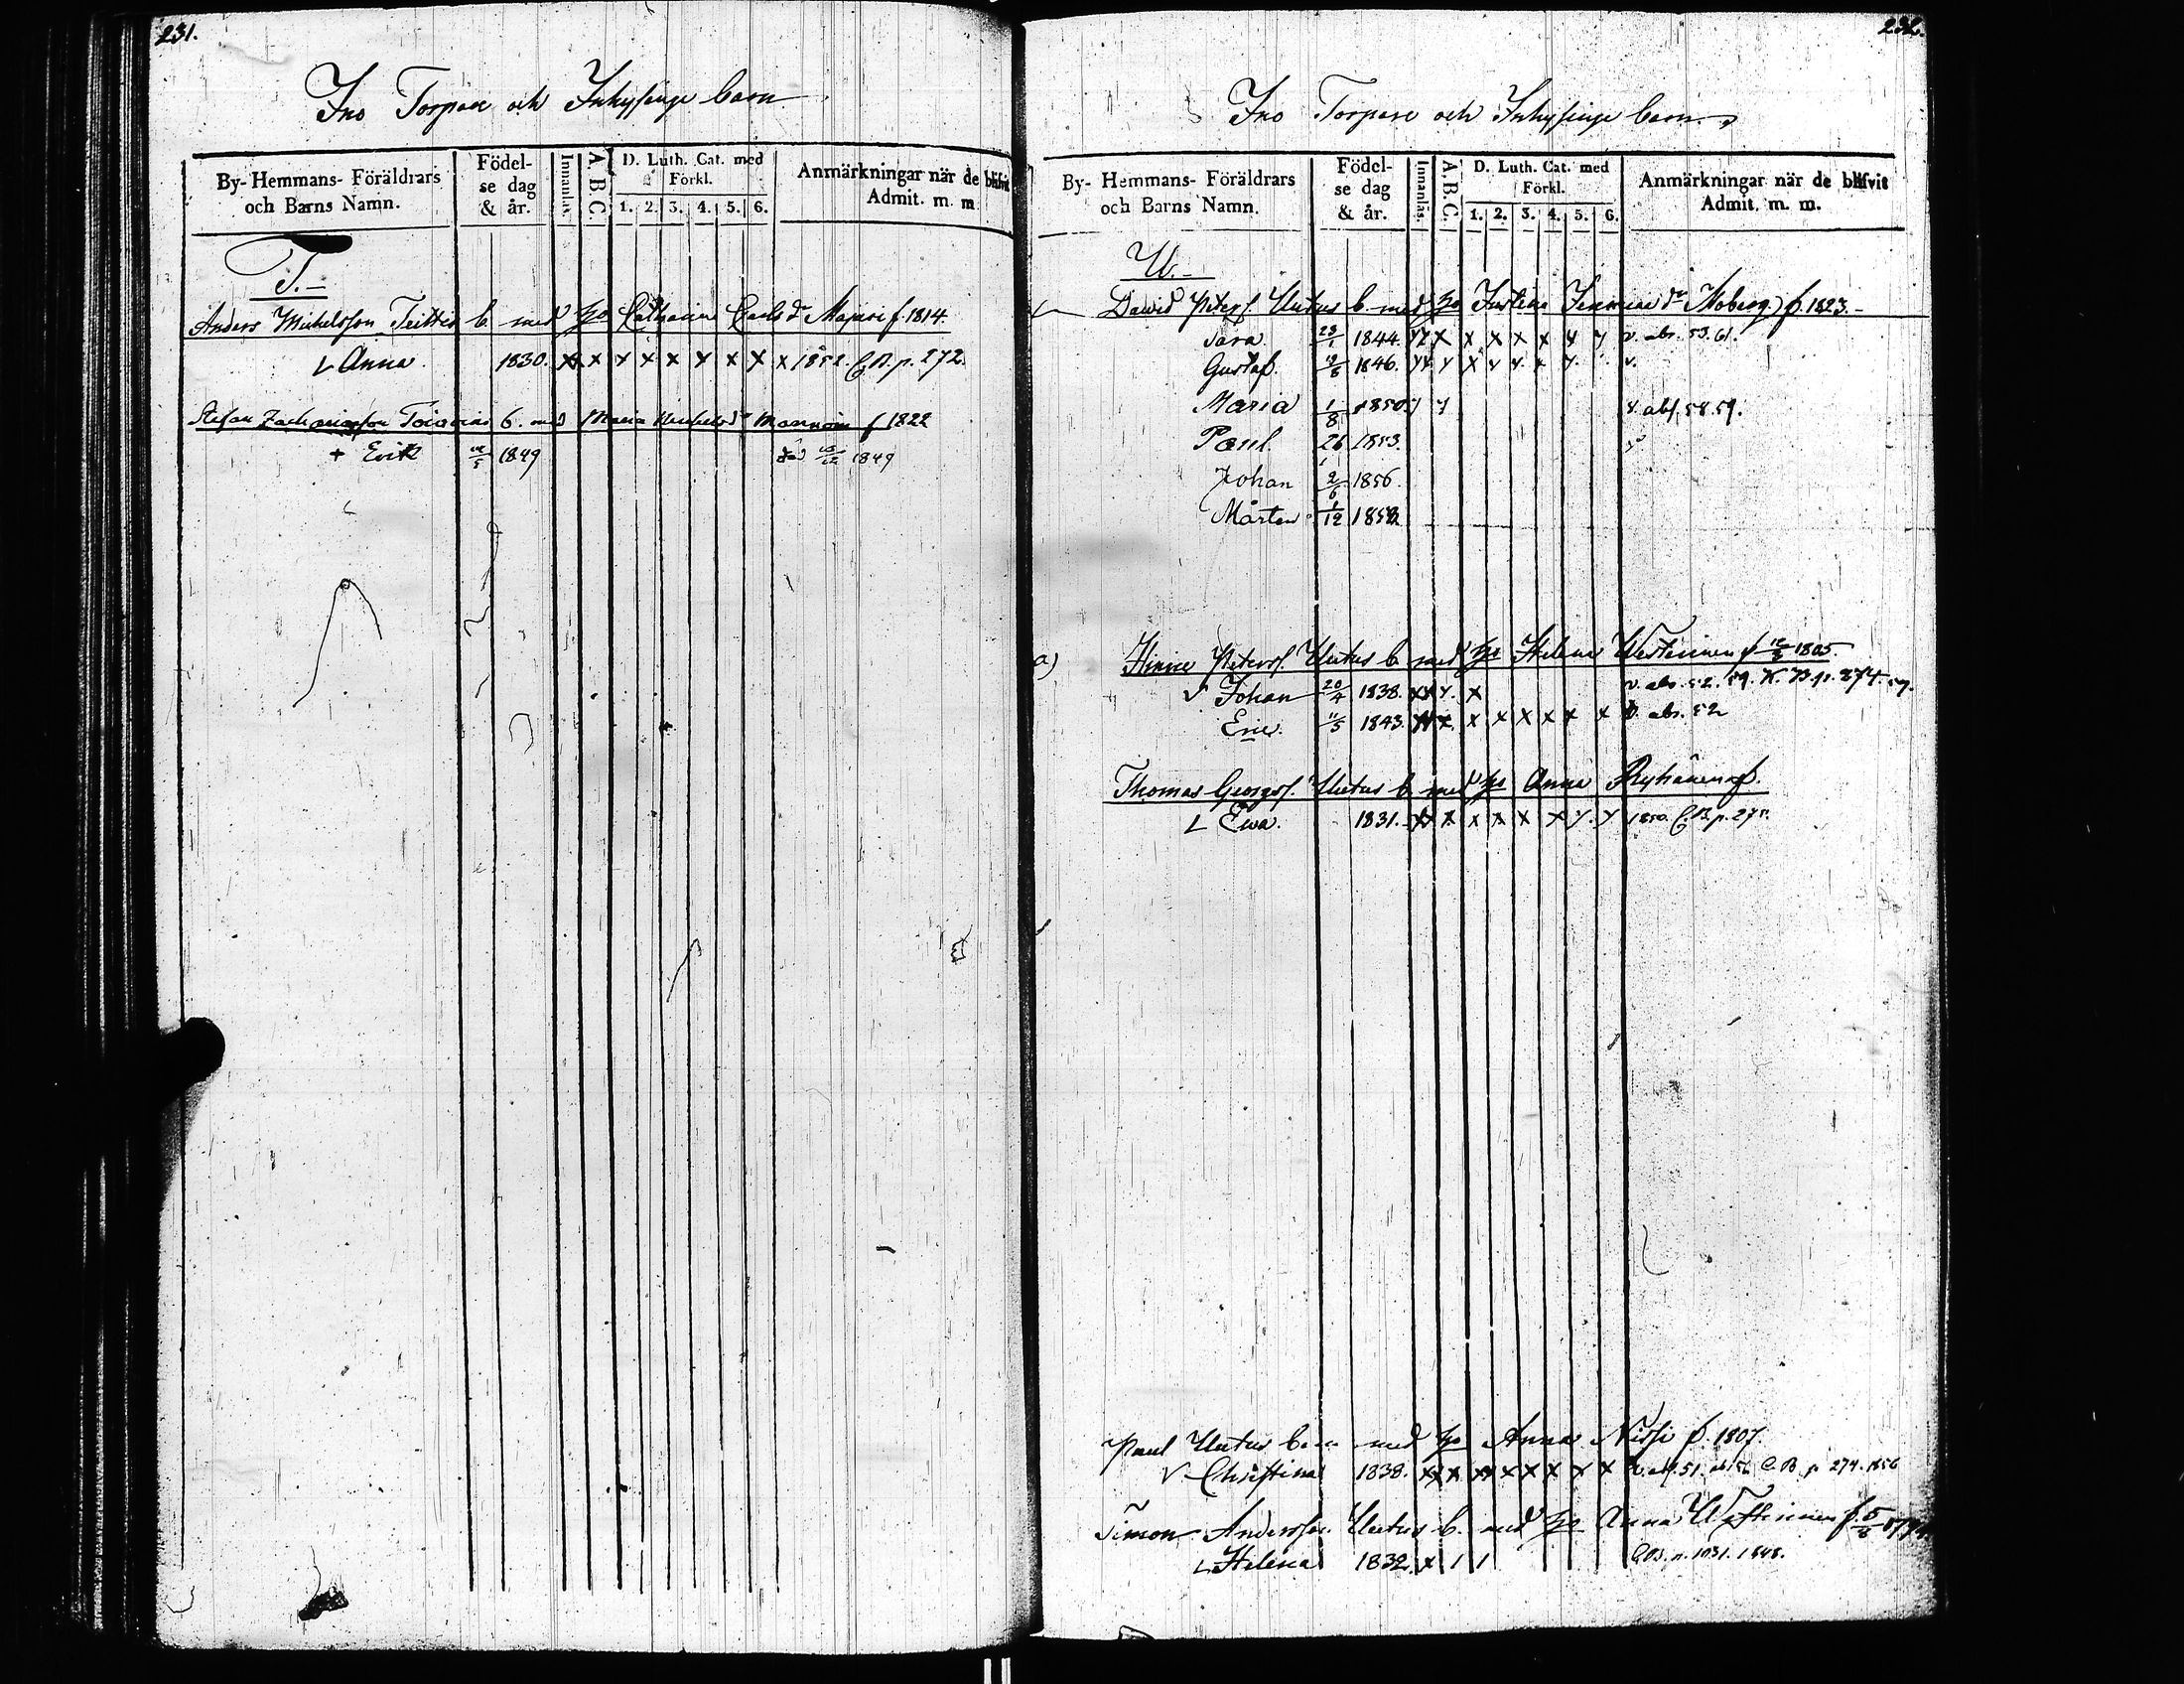 231.
Ino Torpare och Inhysinge barn
By- Hemmans- Föräldrars och Barns Namn.
Födelse dag & år.
Innanläs.
A.B.C.
D. Luth. Cat. med Förkl.
1. 2. 3. 4. 5. 6.
Anmärkningar när de blifvit Admit. m. m.
T.-
Anders Michelsson Teittis b. med h:o Catharina Carls dr Majuri f. 1814.
Anna. 1830. x x y x x y x x x 1852. C.B. p. 272.
Stefan Zachariasson Toiviain b. med Maria Michels dr Monnoin f 1822
+ Erik 1849 död 1849
232.
Ino Torpare och Inhysinge barn.
By- Hemmans- Föräldrars och Barns Namn.
Födelse dag & år.
Innanläs.
A.B.C.
D. Luth. Cat. med Förkl.
1. 2. 3. 4. 5. 6.
Anmärkningar när de blifvit Admit. m. m.
U.-
David Peterss. Uutus b. med h:o Justina dr Moberg f. 1823.-
Sara 23/1 1844. v. abs. 53. 61.
Gustaf. 1846. v.
Maria 1/8 1850. v. abs. 58. 59.
Paul. 26/1 1853.
Johan 2/6 1856.
Mårten 1/12 1858
a) Hinric Peterss. Uutus b. med h:o Helena Westerinen f 1805.
v Johan 20/4 1838. v. abs. 52. 59. K. B. p. 274. 57.
Eric. 11/5 1843. v. abs. 52
Thomas Georgss. Uutus b. med h:o Anna Ryhänen f.
Ewa. 1831. 1850. C.B. p. 275.
Paul Uutus barn med h:o Anna Nissi f. 1807.
v Christina 1838. v. abs. 51. C.B. p 274. 1856
Simon Andersson Uutus b. med h:o Anna Westerinen f. 5/8
Helena 1832. x 1 1 C.B. p. 1031. 1848.